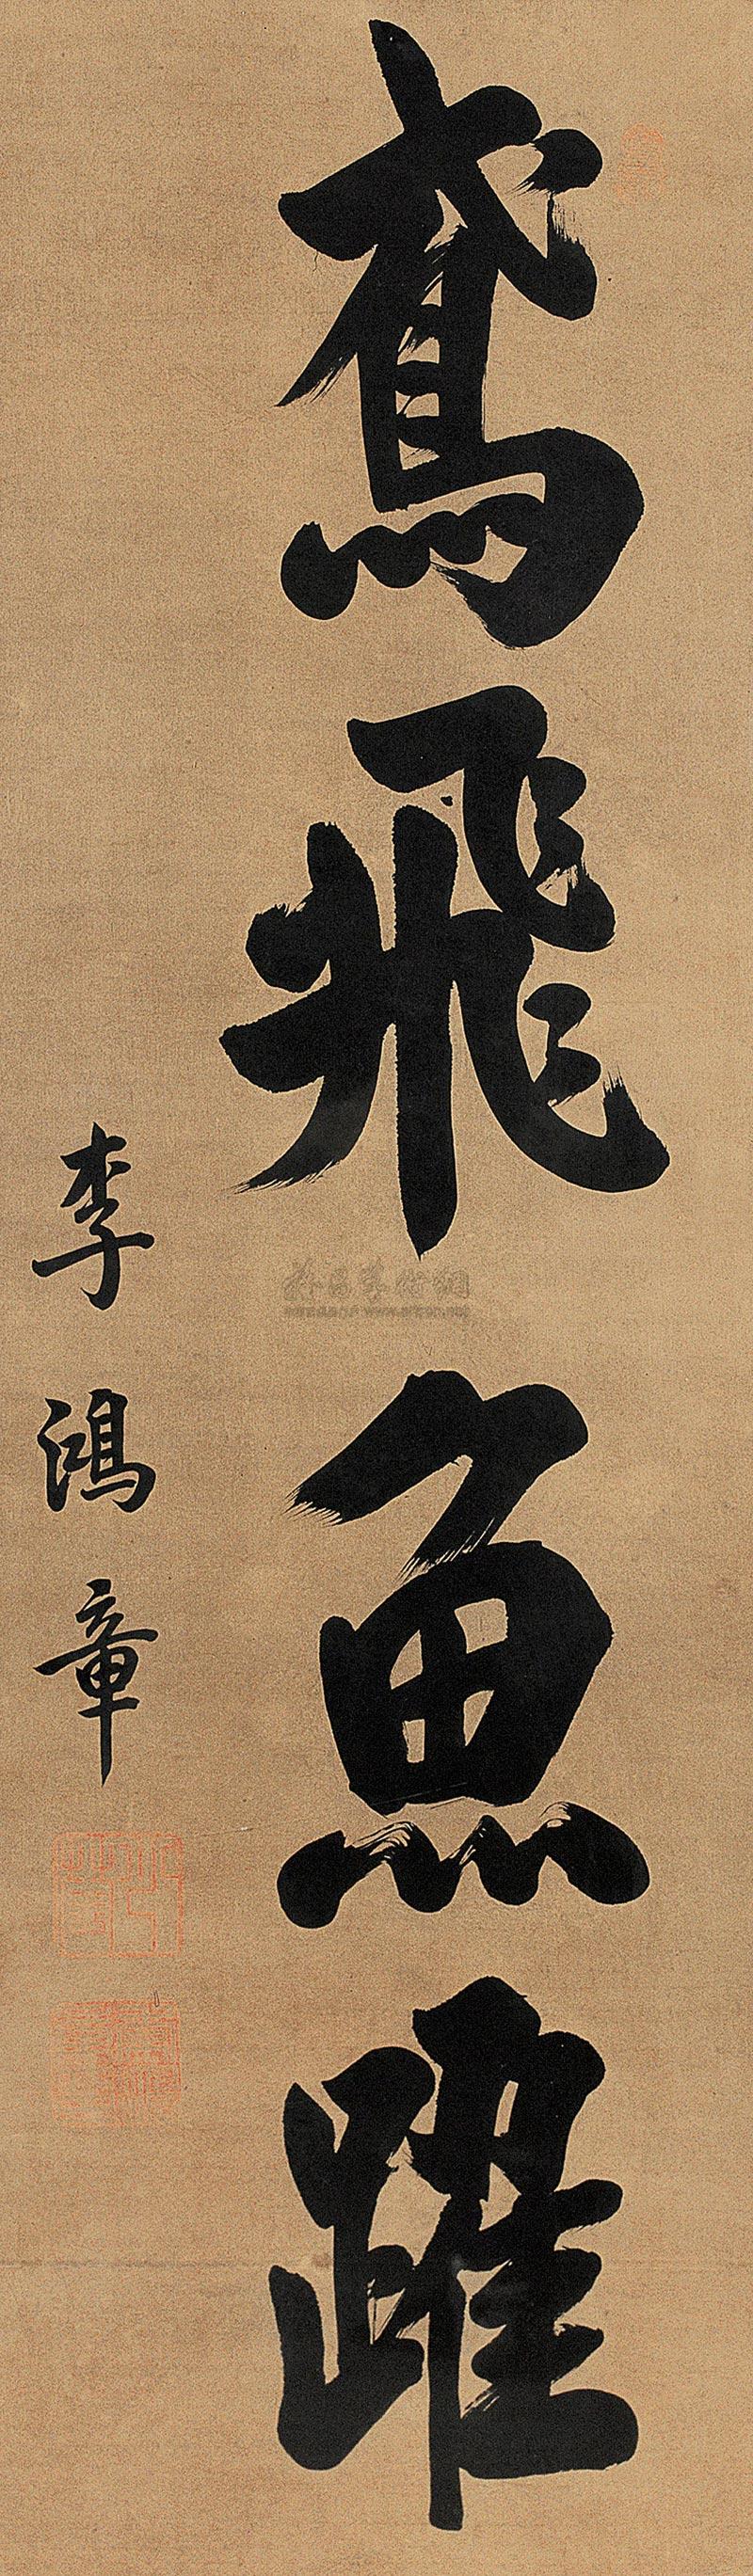 鳶飛魚躍
李鴻章